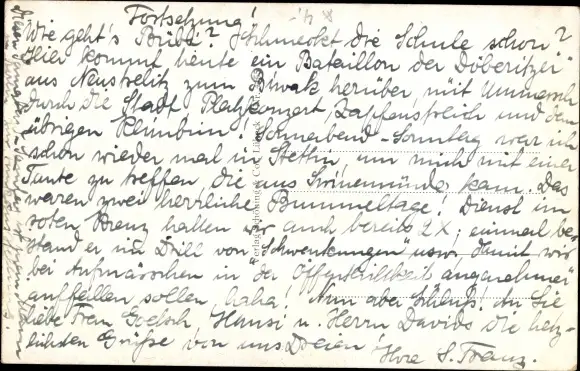 Fortsetzung!
Wie geht's Bübi? Schmeckt die Schule schon?
Hier kommt heute ein Bataillon der "Döberitzer"
aus Neustrelitz zum Biwak herüber, mit Ummarsch
durch die Stadt, Platzkonzert, Zapfenstreich und dem
übrigen Klimbim. Sonnabend - Sonntag war ich
schon wieder mal in Stettin, um mich mit einer
Tante zu treffen, die aus Swinemünde kam. Das
waren zwei herrliche Bummeltage! Dienst im
roten Kreuz hatten wir auch bereits 2x; einmal be-
stand er im Drill von "Schwenkungen" usw, damit wir
bei Aufmärschen in der Öffentlichkeit "angenehm"
auffallen sollen, haha! Nun aber Schluß. An Sie
liebe Frau Goetsch, Hansi u. Herrn Davids die herz-
lichsten Grüße von uns Dreien!
Ihre S. Franz.